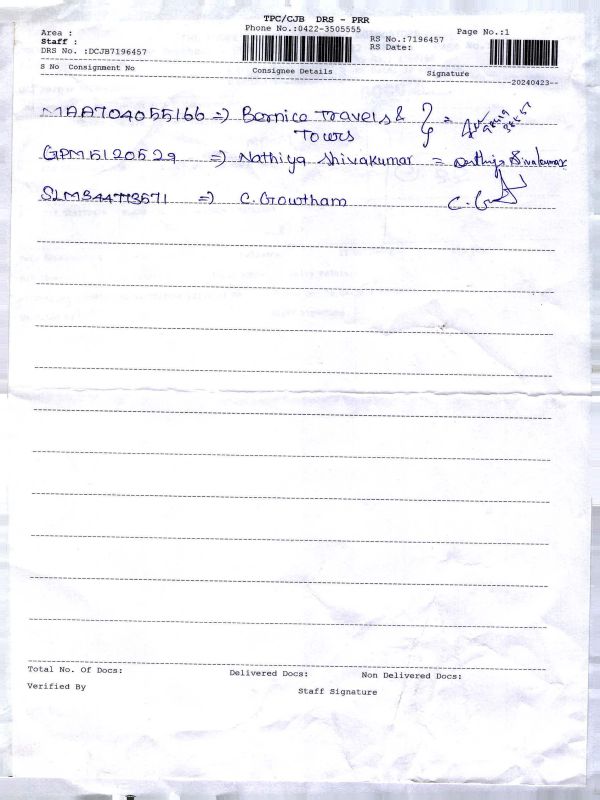 TPC/CJB DRS - PRR
Area : Phone No.:0422-3505555 RS No.:7196457 Page No.:1
Staff : RS Date:
DRS No. :DCJB7196457
S No Consignment No Consignee Details Signature
20240423
MAA704055166 => Bernice Travels & Tours =
98519
38557
GPM5120529 => Nathiya Shivakumar = Nathiya Sivakumar
SLM344773571 => C. Gowtham C. G
Total No. Of Docs: Delivered Docs: Non Delivered Docs:
Verified By Staff Signature